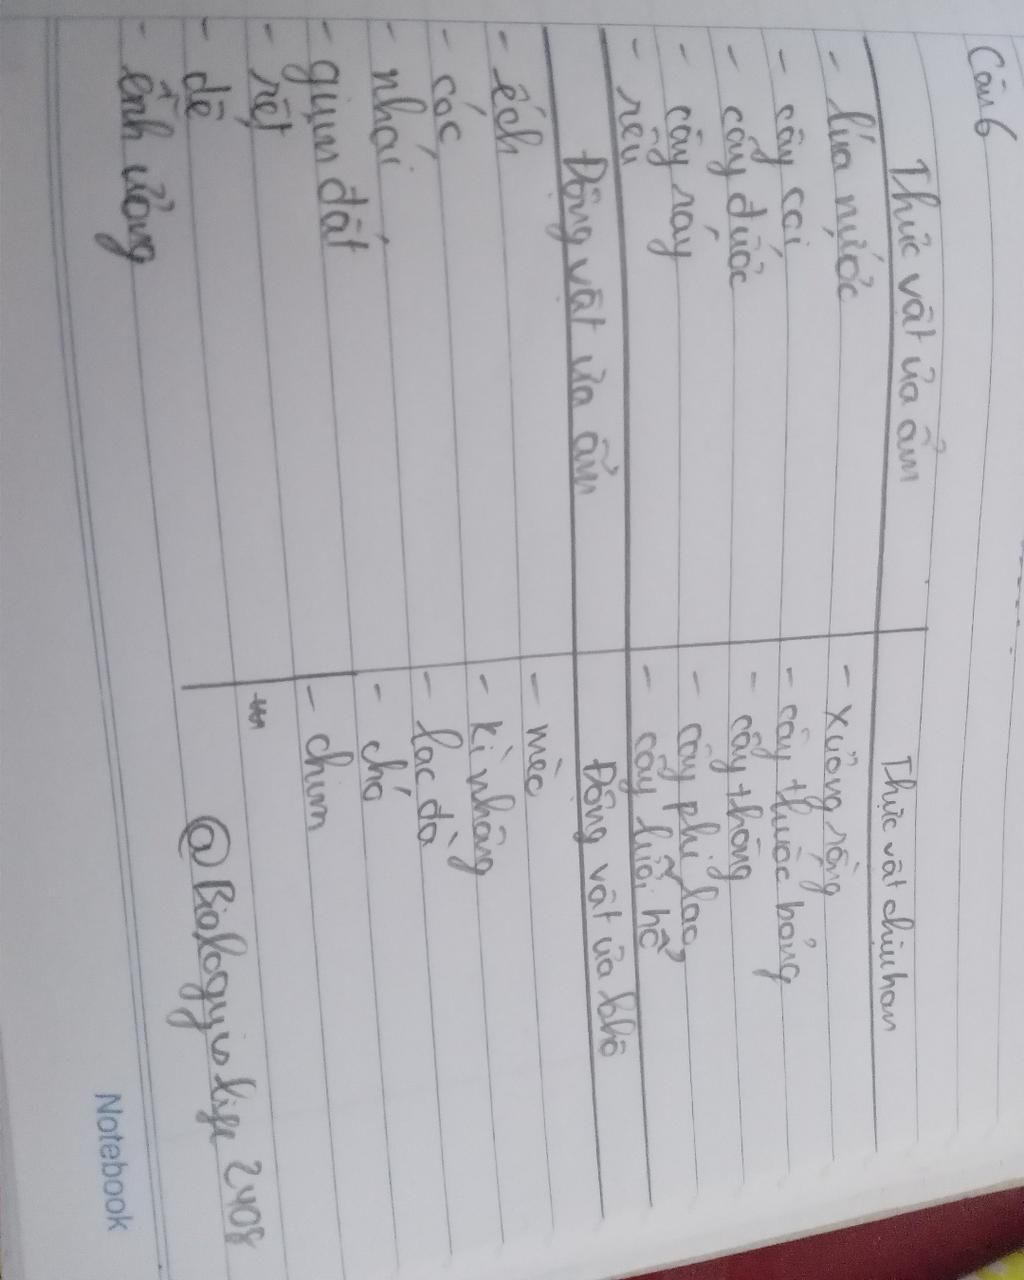 Câu 6
Thực vật ưa ẩm
Thực vật chịu hạn
- lúa nước
- cây cói
- cây đước
- cây ráy
- rêu
- xương rồng
- cây thuốc bỏng
- cây thông
- cây phi lao
- cây lưỡi hổ
Động vật ưa ẩm
Động vật ưa khô
- ếch
- cóc
- nhái
- giun đất
- rết
- dế
- ễnh ương
- mèo
- kì nhông
- lạc đà
- chó
- chim
@Biologyislife2408
Notebook